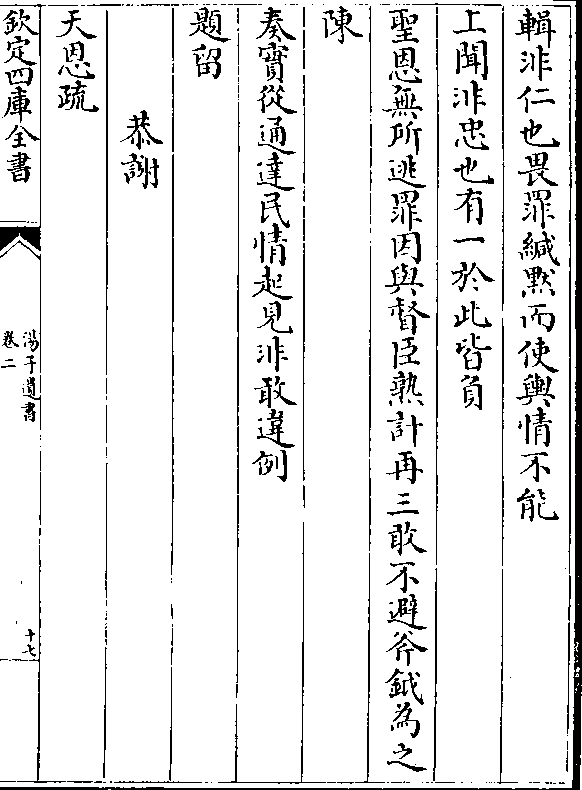 輯非仁也畏罪緘黙而使輿情不能
上聞非忠也有一於此皆負
聖恩無所逃罪因與督臣熟計再三敢不避斧鉞為之
陳
奏實從通達民情起見非敢違例
題留
恭謝
天恩疏
欽定四庫全書
湯子遺書
卷二
十七